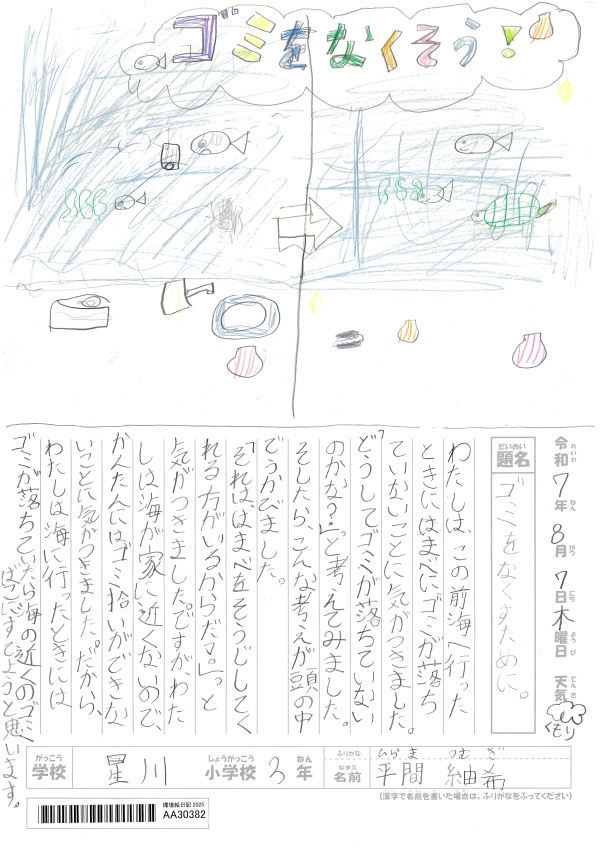 ゴミをなくそう!
令和7年8月7日木曜日 天気 くもり
れいわ ねん がつ にち ようび てんき
だいめい
題名 ゴミをなくすために。
わたしは、この前海へ行った
ときにはまべにゴミが落ち
ていないことに気がつきました。
「どうしてゴミが落ちていない
のかな?」っと考えてみました。
そしたら、こんな考えが頭の中
でうかびました。
「それははまべをそうじしてく
れる方がいるからだな。」っと
気がつきました。ですが、わた
しは海が家に近くないので、
かんたんにはゴミ拾いができな
いことに気がつきました。だから、
わたしは海に行ったときには
ゴミが落ちていたら海の近くのゴミ
ばこにすてようと思います。
がっこう しょうがっこう ねん ふりがな ひらま つむぎ
学校 星川 小学校 3年 なまえ 名前 平間 紬希
(漢字で名前を書いた場合は、ふりがなをふってください)
環境絵日記 2025
AA30382